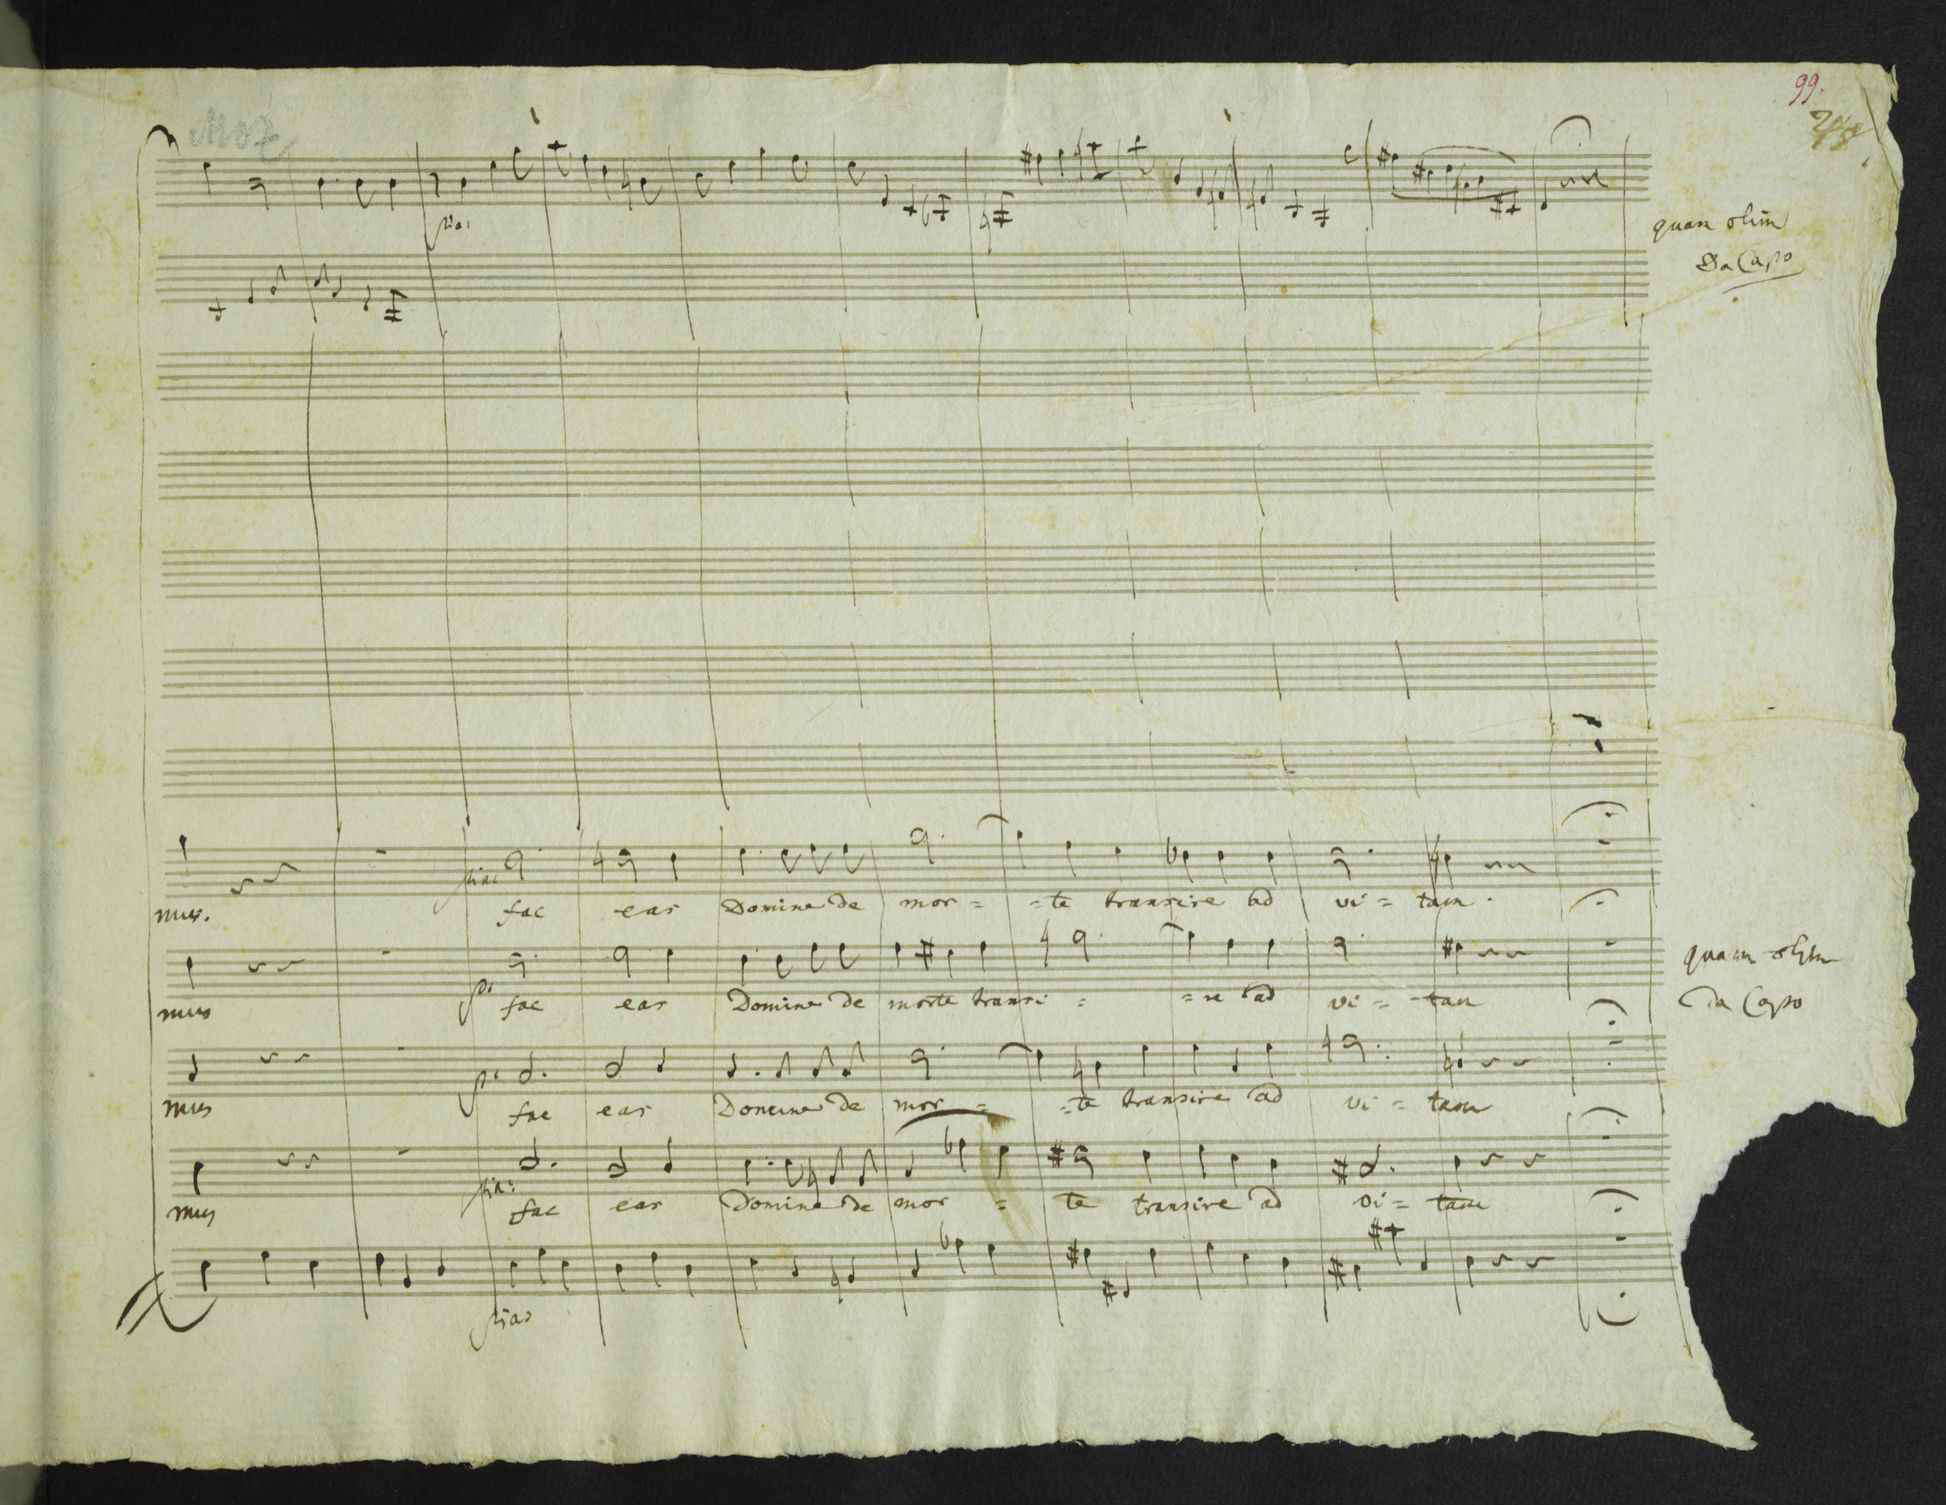 99.
Moz
pia:
quam olim
Da Capo
pia:
mus. fac eas Domine de mor = = te transire ad vi = tam.
p:
mus fac eas Domine de morte transi = = re ad vi = tam
quam olim
da Capo
p:
mus fac eas Domine de mor = = te transire ad vi = tam
pia:
mus fac eas Domine de mor = te transire ad vi = tam
pia: